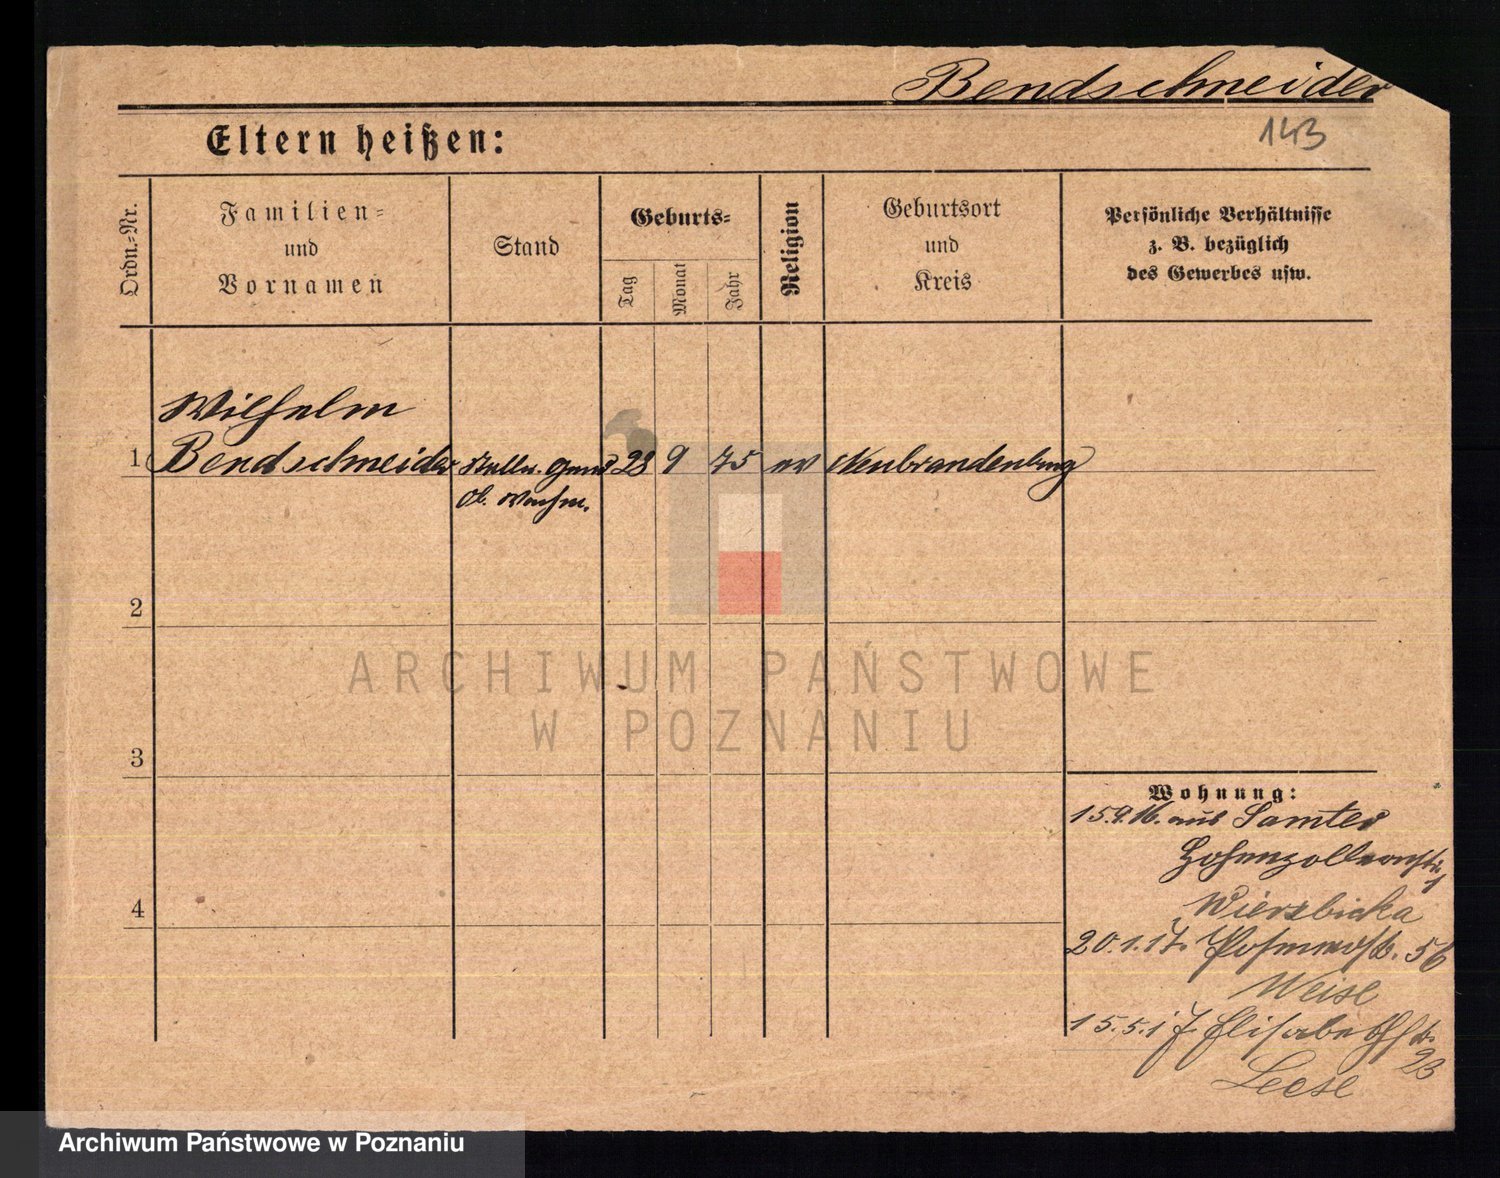 Bendschneider
143
Eltern heißen:
Ordn.=Nr.
Familien=
und
Vornamen
Stand
Geburts=
Tag
Monat
Jahr
Religion
Geburtsort
und
Kreis
Persönliche Verhältnisse
z. B. bezüglich
des Gewerbes usw.
Wilhelm
1 Bendschneider 28 9 75 ev Neubrandenburg
Ob. Wachm.
2
3
4
Wohnung:
15.9.16. aus Samter
Hohenzollernstr.
1
Wierzbicka
20.1.17. Posenerstr. 56
Weise
15.5.17 Elisabethstr.
23
Leese
ARCHIWUM PAŃSTWOWE
W POZNANIU
Archiwum Państwowe w Poznaniu